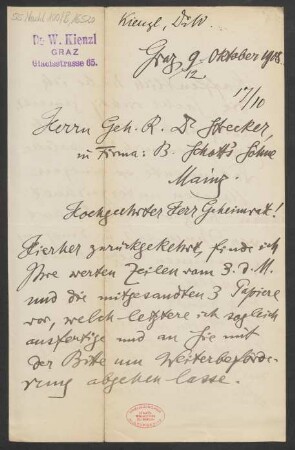 Kienzl, Dr W.
Dr. W. Kienzl
GRAZ
Glacisstrasse 65.
Graz 9. Oktober 1908.
12.
17/10
Herrn Geh. R. Dr Strecker,
in Firma: B. Schott's Söhne
Mainz
Hochgeehrter Herr Geheimrat!
Hierher zurückgekehrt, finde ich
Ihre werten Zeilen vom 3. d. M.
und die mitgesandten 3 Papiere
vor, welch letztere ich sogleich
ausfertige und an Sie mit
der Bitte um Weiterbeförde-
rung abgehen lasse.